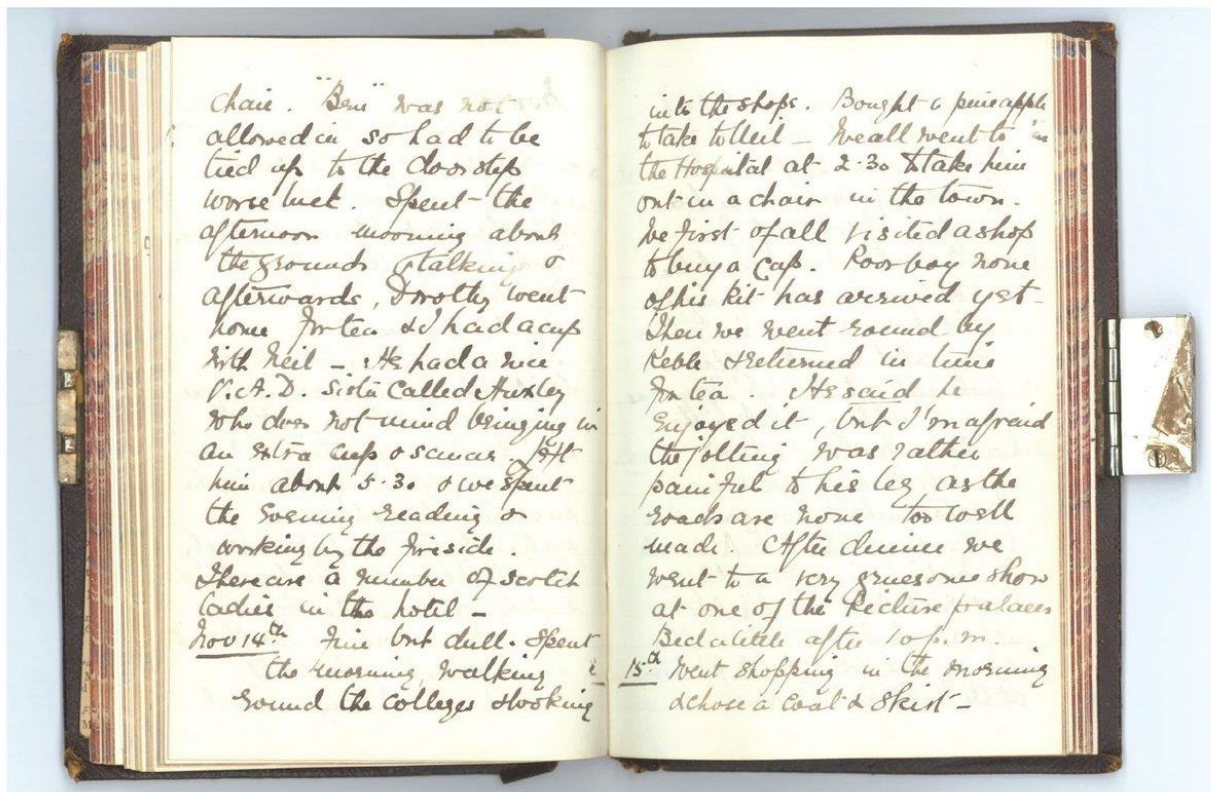 chair. "Ben" was not
allowed in so had to be
tied up to the doorstep
worse luck. Spent the
afternoon mooning about
the grounds talking &
afterwards, Dorothy went
home for tea & I had a cup
with Neil – He had a nice
V.A.D. Sister called Huxley
who does not mind bringing in
an extra cup & saucer. Left
him about 5.30 & we spent
the evening reading &
working by the fireside.
There are a number of Scotch
ladies in the hotel –
Nov 14th Fine but dull. Spent
the morning, walking
round the colleges & looking
into the shops. Bought a pineapple
to take to Neil – We all went to
the Hospital at 2.30 to take him
out in a chair in the town.
We first of all visited a shop
to buy a cap. Poor boy none
of his kit has arrived yet –
Then we went round by
Keble & returned in time
for tea. He said he
enjoyed it, but I'm afraid
the jolting was rather
painful to his leg as the
roads are none too well
made. After dinner we
went to a very gruesome show
at one of the Picture palaces
Bed a little after 10 p.m.
15th Went shopping in the morning
& chose a Coat & Skirt –